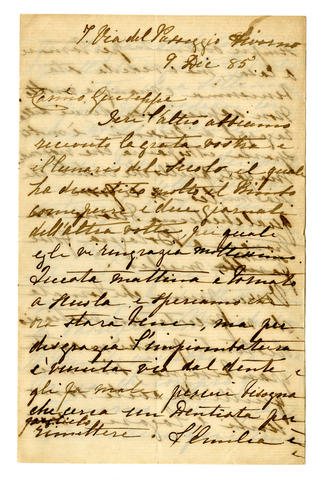 7. Via del Passeggio Livorno
9. Dic 85
Caro Giuseppe
Ieri l'altro abbiamo
ricevuto la grata vostra e
il lunario del Secolo, il quale
ha divertito molto il
come pure i due giornali
dell'altra volta, dei quali
egli vi ringrazia moltissimo.
Questa mattina è tornato
a Scuola e speriamo che
ora starà bene, ma per
disgrazia l'impiombatura
è venuta via dal dente e
gli fa male, perciò bisogna
che cerca un Dentista per
farcielo
rimettere. L'Emilia è